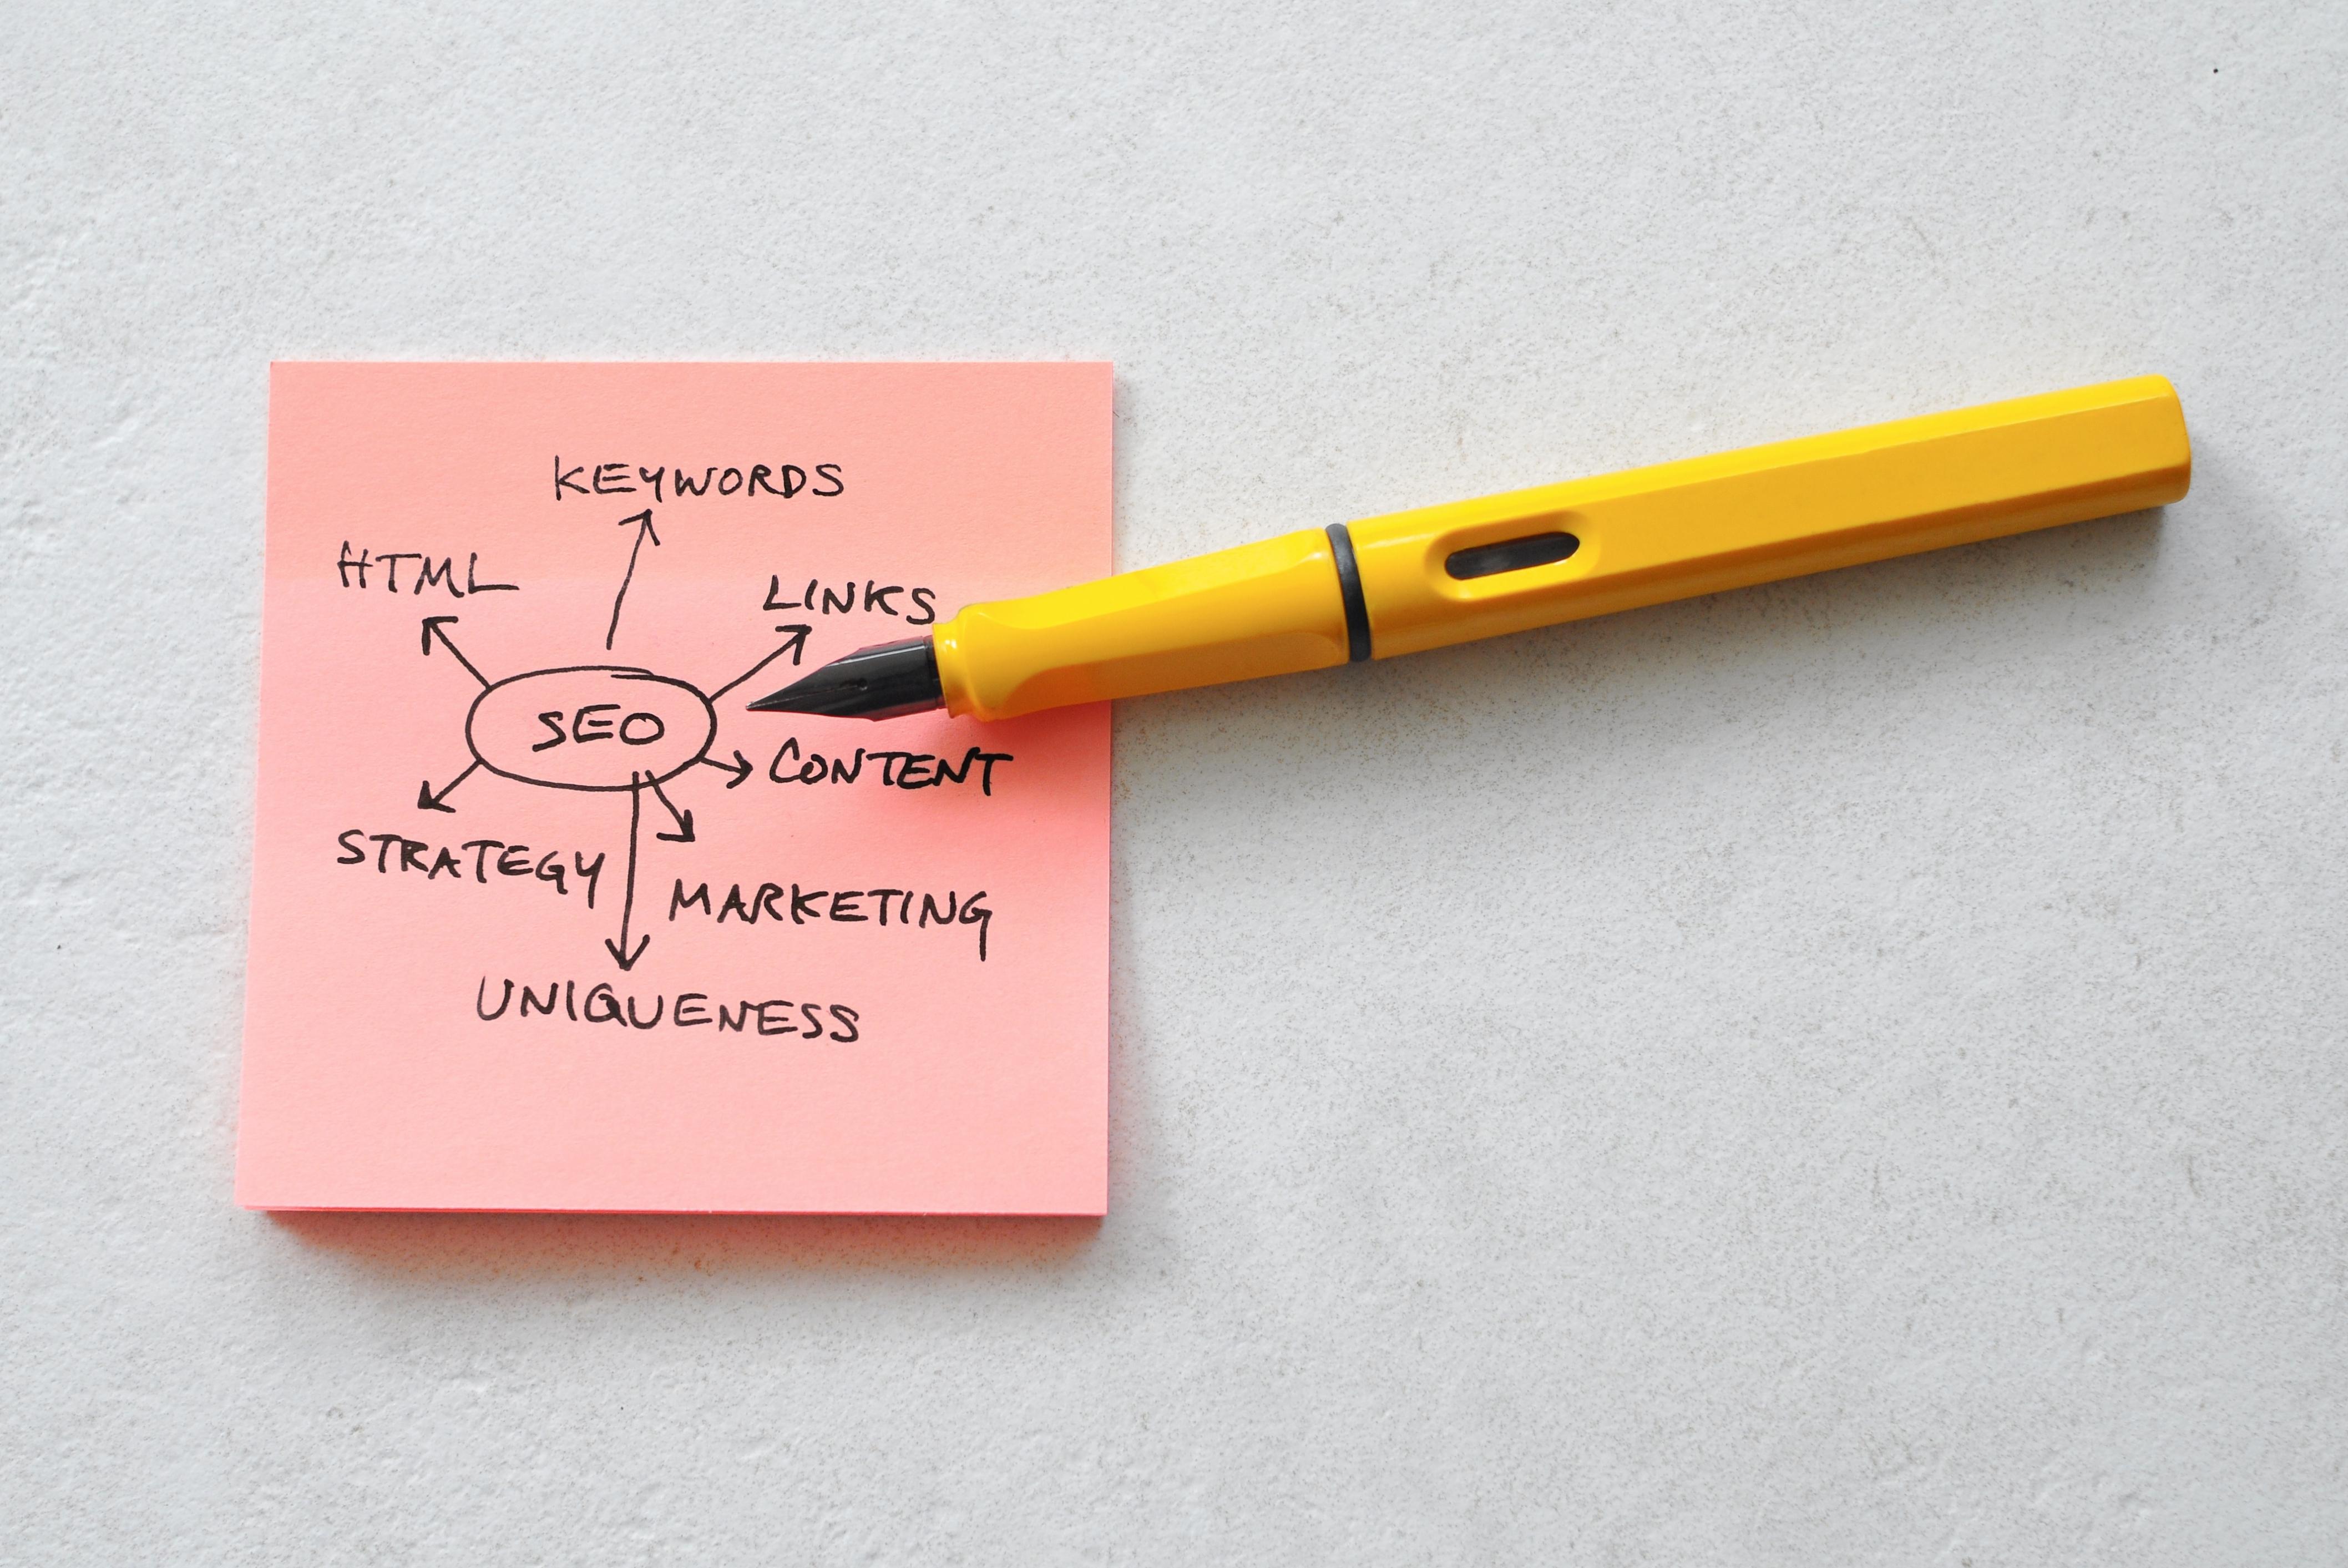 KEYWORDS
HTML
LINKS
SEO
CONTENT
STRATEGY
MARKETING
UNIQUENESS